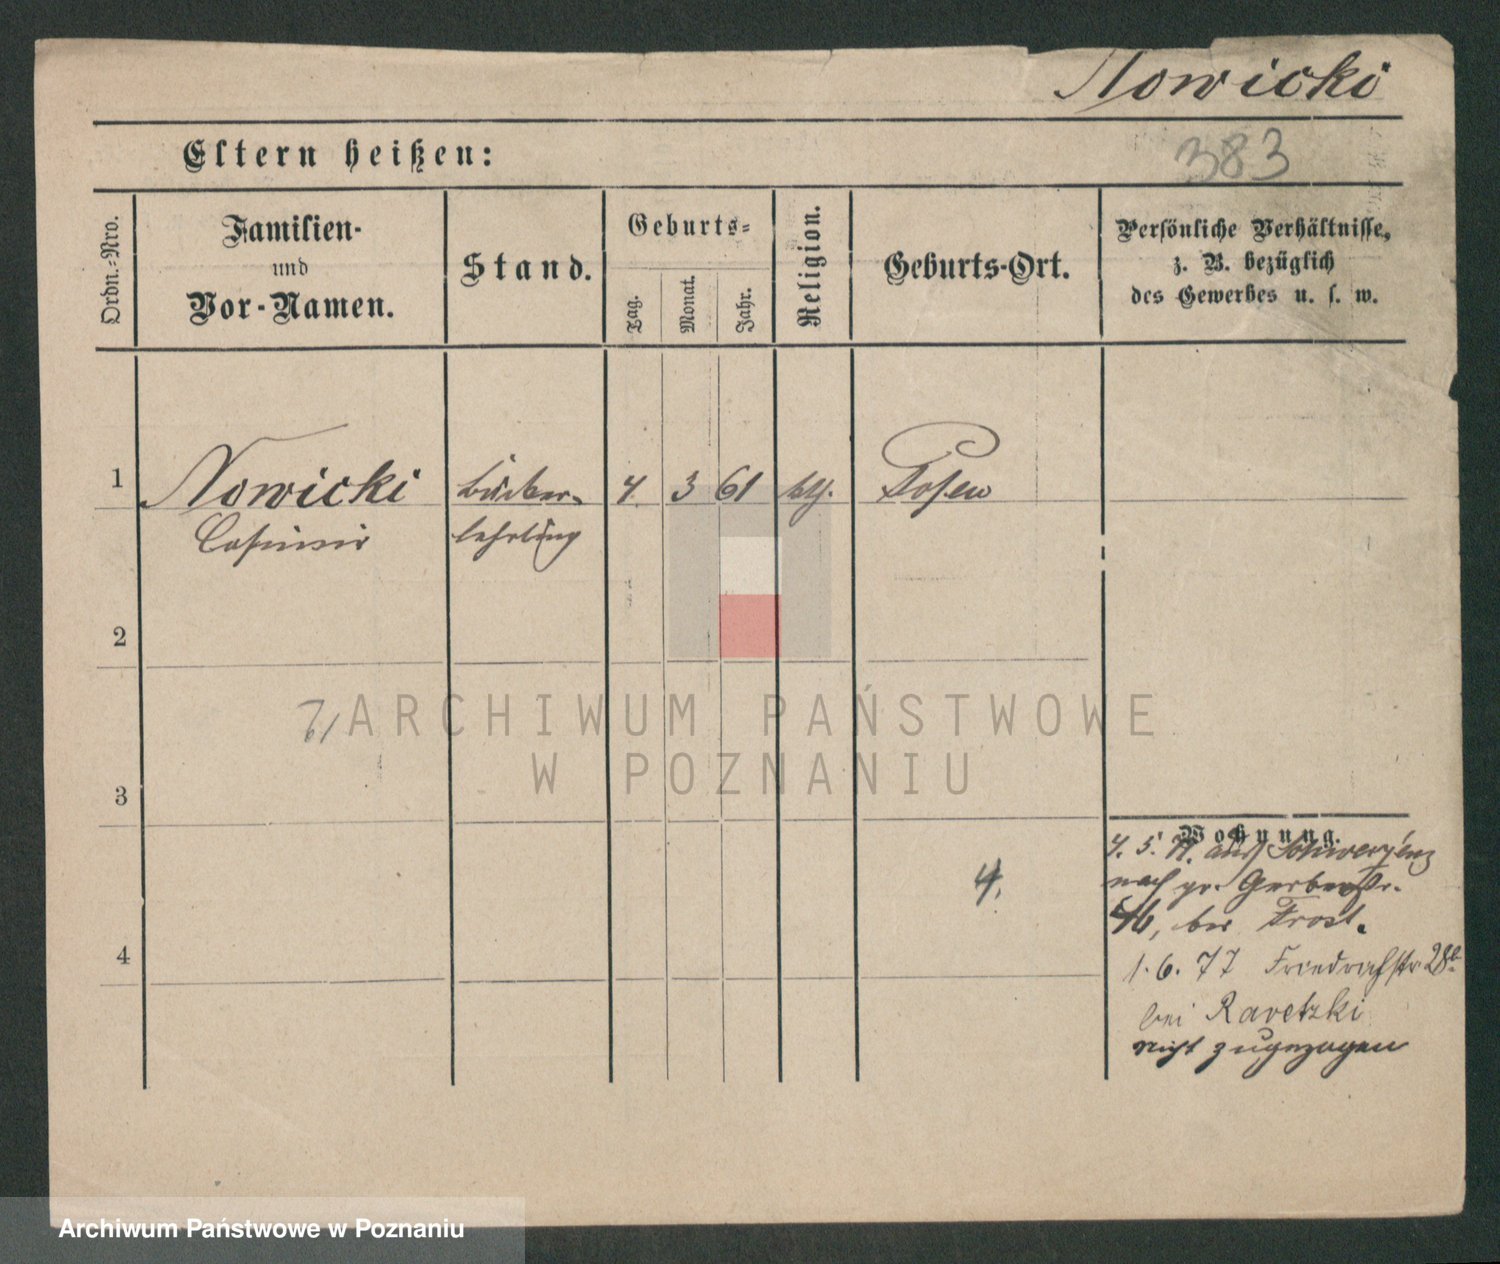 Nowicki
Eltern heißen:
383
Ordn.-Nro.
Familien-
und
Vor-Namen.
Stand.
Geburts-
Tag.
Monat.
Jahr.
Religion.
Geburts-Ort.
Persönliche Verhältnisse,
z. B. bezüglich
des Gewerbes u. s. w.
1
Nowicki
Casimir
lehrling
4. 3 61
Posen
2
71
ARCHIWUM PAŃSTWOWE
W POZNANIU
3
Wohnung.
4. 5. aus Schwersenz
nach gr. Gerberstr.
46, bei Frost.
4.
4
1. 6. 77 Friedrichstr. 28
bei Ravetzki
nicht zugezogen
Archiwum Państwowe w Poznaniu